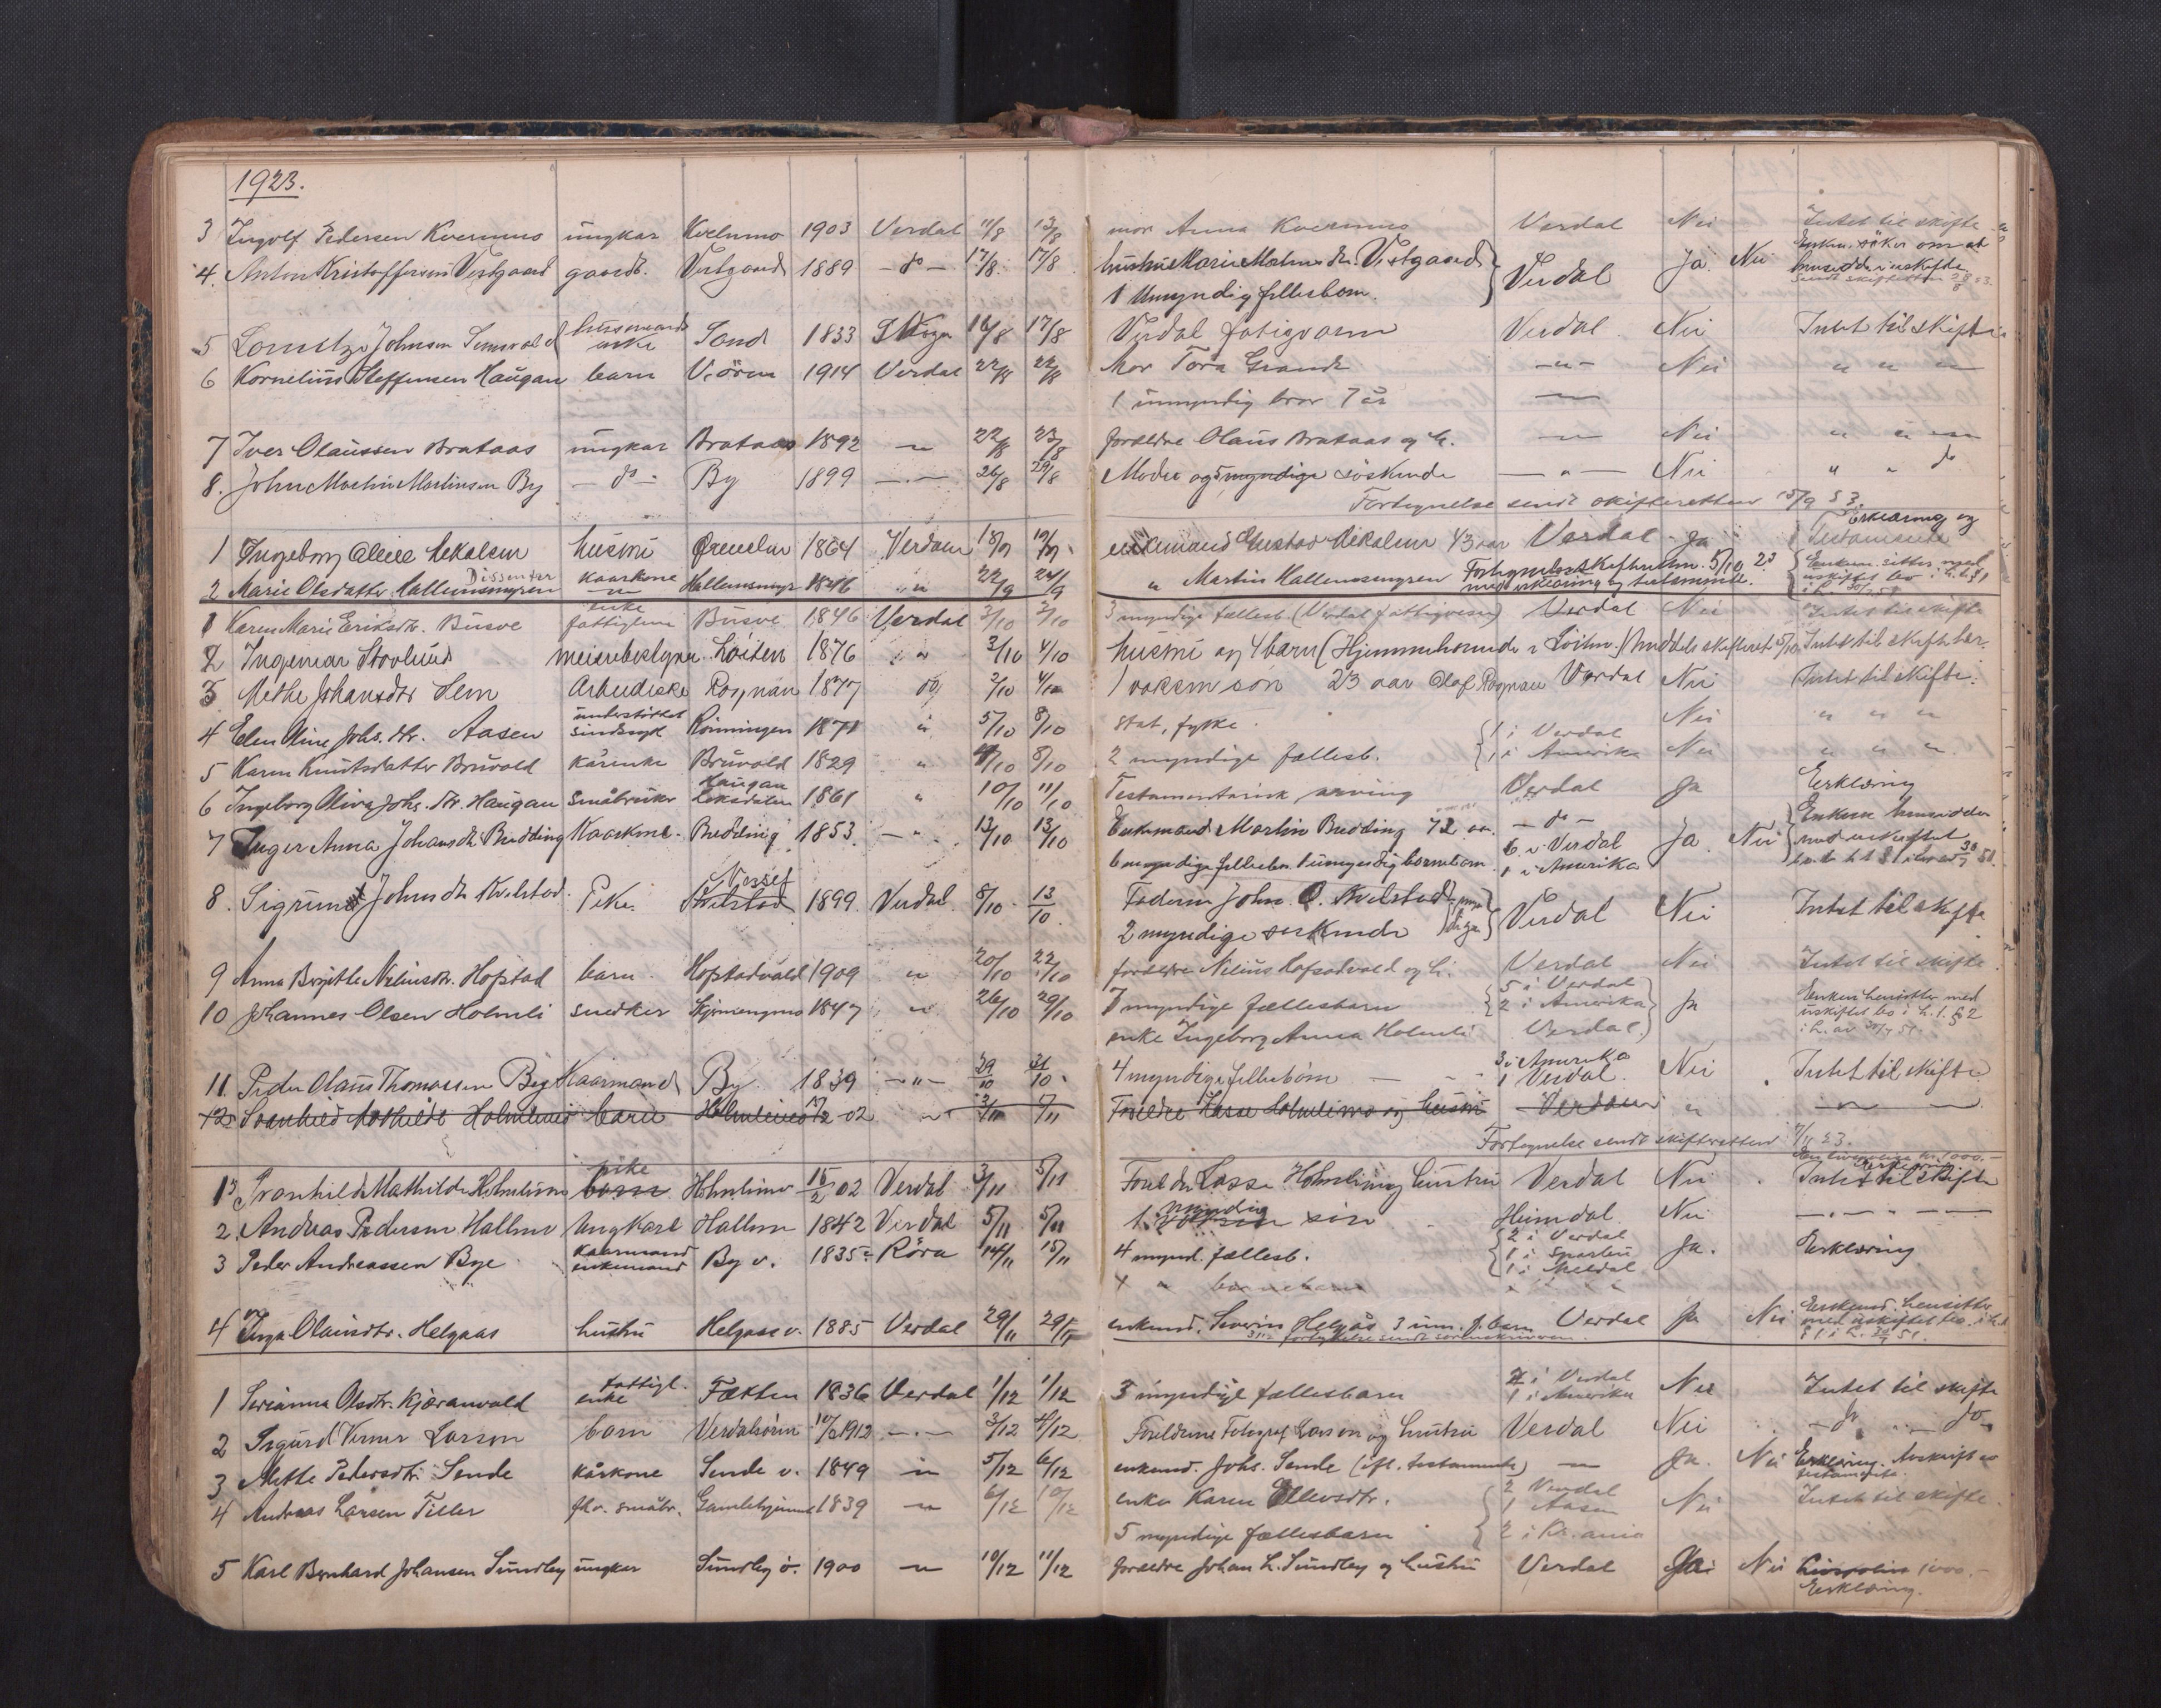 1923.
3 Ingolf Pedersen Kvernmo ungkar Kvelnmo 1903 Verdal 11/8 13/8 mor Anna Kvernmo Verdal Nei Intet til skifte
4. Anton Kristoffersen Vestgaard gaardb. Vestgaard 1889 -do- 17/8 17/8 hustru Marie Vestgaard Verdal Ja. Nei Enken søker om at
1 Umyndig fellesbarn. hensidde i uskifte
5 Johnsen husmands enke Sand 1833 16/8 17/8 Verdal fatigvæsen Verdal Nei Intet til skifte
6 Kornelius Steffensen Haugan barn V.øren 1914 Verdal 22/8 22/8 Mor Tora Grande -"- Nei " " "
1 umyndig bror 7 år
7 Iver Olaussen Brataas ungkar Brataas 1892 -"- 22/8 23/8 forældre Olaus Brataas og h. Nei " " "
8. John Martin Martinsen By -do- By 1899 -"- 26/8 29/8 Moder og 5 myndige søskende -"- Nei " " do
Fortegnelse sendt skifteretten 15/9 23.
1 Ingeborg Mikalsen hustru 1864 Verdalen 18/9 19/9. enkemand Gustav Mikalsen 43 aar Verdal - Ja Erklæring og Testamente
2 Marie Olsdatter Hallemsmyren Dissenter kaarkone Hallemsmyr 1846 " 22/9 24/9 " Martin Hallemsmyren Fortegnelse skifteretten. 5/10 23 med erklæring og testamente.
1 Karen Marie Eriksdtr. Busve enke fattiglem Busve 1846 Verdal 2/10 2/10 3 myndige fællesb. (Verdal fattigvæsen) Verdal Nei Intet til skifte
2 Ingemar Stovlund meieribestyrer Løiten 1876 " 3/10 4/10 hustru og 4 barn (Hjemmehørende i Løiten) Intet til skifte her.
3 Methe Johansdtr Hem Arbeiderske Rognan 1877 do 2/10 4/10 1 voksen søn 23 aar Olaf Rognan Verdal Nei Intet til skifte.
4 Elen Oline Johs. dtr. Aasen understøttet sindssyk Rønningen 1871 " 5/10 8/10 stat, fylke. Nei " " "
5 Karen Knutsdatter Bruvold kårenke Bruvold 1829 " 4/10 8/10 2 myndige fællesb. 1 i Verdal 1 i Amerika Nei " " "
6 Ingeborg Oliva Johs. dtr. Haugan småbruker Haugan Leksdalen 1861 " 10/10 11/10 Testamentarisk arving Verdal Ja Erklæring
7 Inger Anna Johansdtr Bredding Kaarkone Bredding 1853. -"- 12/10 13/10 Enkemand Martin Bredding 72 aar. -do- Ja. Nei Enkem. hensidder
6 myndige fellesbarn 1 umyndig barnebarn 6 i Verdal 1 i Amerika med uskiftet
8. Sigrund Johnsdtr Kvelstad. Pike Kvelstad 1899. Verdal. 8/10. 13/10. Faderen John O. Kvelstad Verdal Nei Intet til skifte
2 myndige søskende
9 Anna Birgitte Neliusdtr. Hofstad barn. Hofstadvald 1909 " 20/10 22/10 forældre Nelius Hofstadvald og h. Verdal Nei Intet til skifte
10 Johannes Olsen Holmli snedker 1847 " 26/10 29/10 7 myndige fællesbarn 5 i Verdal 2 i Amerika Ja Enken hensitter med uskiftet bo i h.t. § 2
enke Ingeborg Anna Holmli Verdal
11. Peder Olaus Thomassen By Kaarmand By. 1839 -"- 29/10 31/10. 4 myndige fellesbørn 3 i Amerika 1 Verdal. Nei Intet til skifte
12. Svanhild Mathilde Holmlimo barn Holmlimo 02 " 3/11 5/11 Foreldre Lasse Holmlimo og hustru Verdalen " -"-
Fortegnelse sendt skifteretten 7/11 23.
1. Svanhild Mathilde Holmlimo barn pike Holmlimo 15/2 02 Verdal 3/11 5/11 Foreldre Lasse Holmlimo og hustru Verdal Nei Intet til skifte
2. Andreas Pedersen Hallem Ungkarl Hallem 1842 Verdal 5/11 5/11 1 myndig søn Heimdal. Nei -"-
3 Peder Andreassen Bye kaarmand enkemand By v. 1835 Røra 14/11 15/11 4 mynd. fællesb. 2 i Verdal 1 i Sparbu 1 i Skeldal Ja. Erklæring
4 " barnebarn
4 Inga Olausdtr. Helgaas hustru Helgaas v. 1885 Verdal 29/11 29/11 enkemd. Severin Helgås 3 um. f.barn Verdal Ja Nei Enkemd. hensitter med uskiftet bo
1 Serianna Olsdtr. Kjæranvald fattigl. enke Fætten 1836 Verdal 1/12 1/12 3 myndige fællesbarn 2 i Verdal 1 i Amerika Nei Intet til skifte
2 Sigurd Verner Larson barn Verdalsøren 1912 -"- 3/12 4/12 Foreldrene Fotograf Larson og hustru Verdal Nei -do- -do-
3 Mette Pedersdtr. Sende kårkone Sende v. 1849 " 5/12 6/12 enkemd. Johs. Sende (ifl. testamente) -"- Ja. Nei Erklæring. Avskrift av testamente.
4 Andreas Larsen Tiller flv. småbr. Gamlehjemmet 1839 -"- 6/12 10/12 enke Karen Ellevsdtr. 2 Verdal 1 Aasen Nei Intet til skifte.
5 myndige fællesbarn 2 i Kr.ania
5 Karl Bernhard Johansen Sundby ungkar Sundby ø. 1900 -"- 10/12 11/12 foreldre Johan L. Sundby og hustru Verdal Ja Nei Livspolise 1000.- Erklæring.